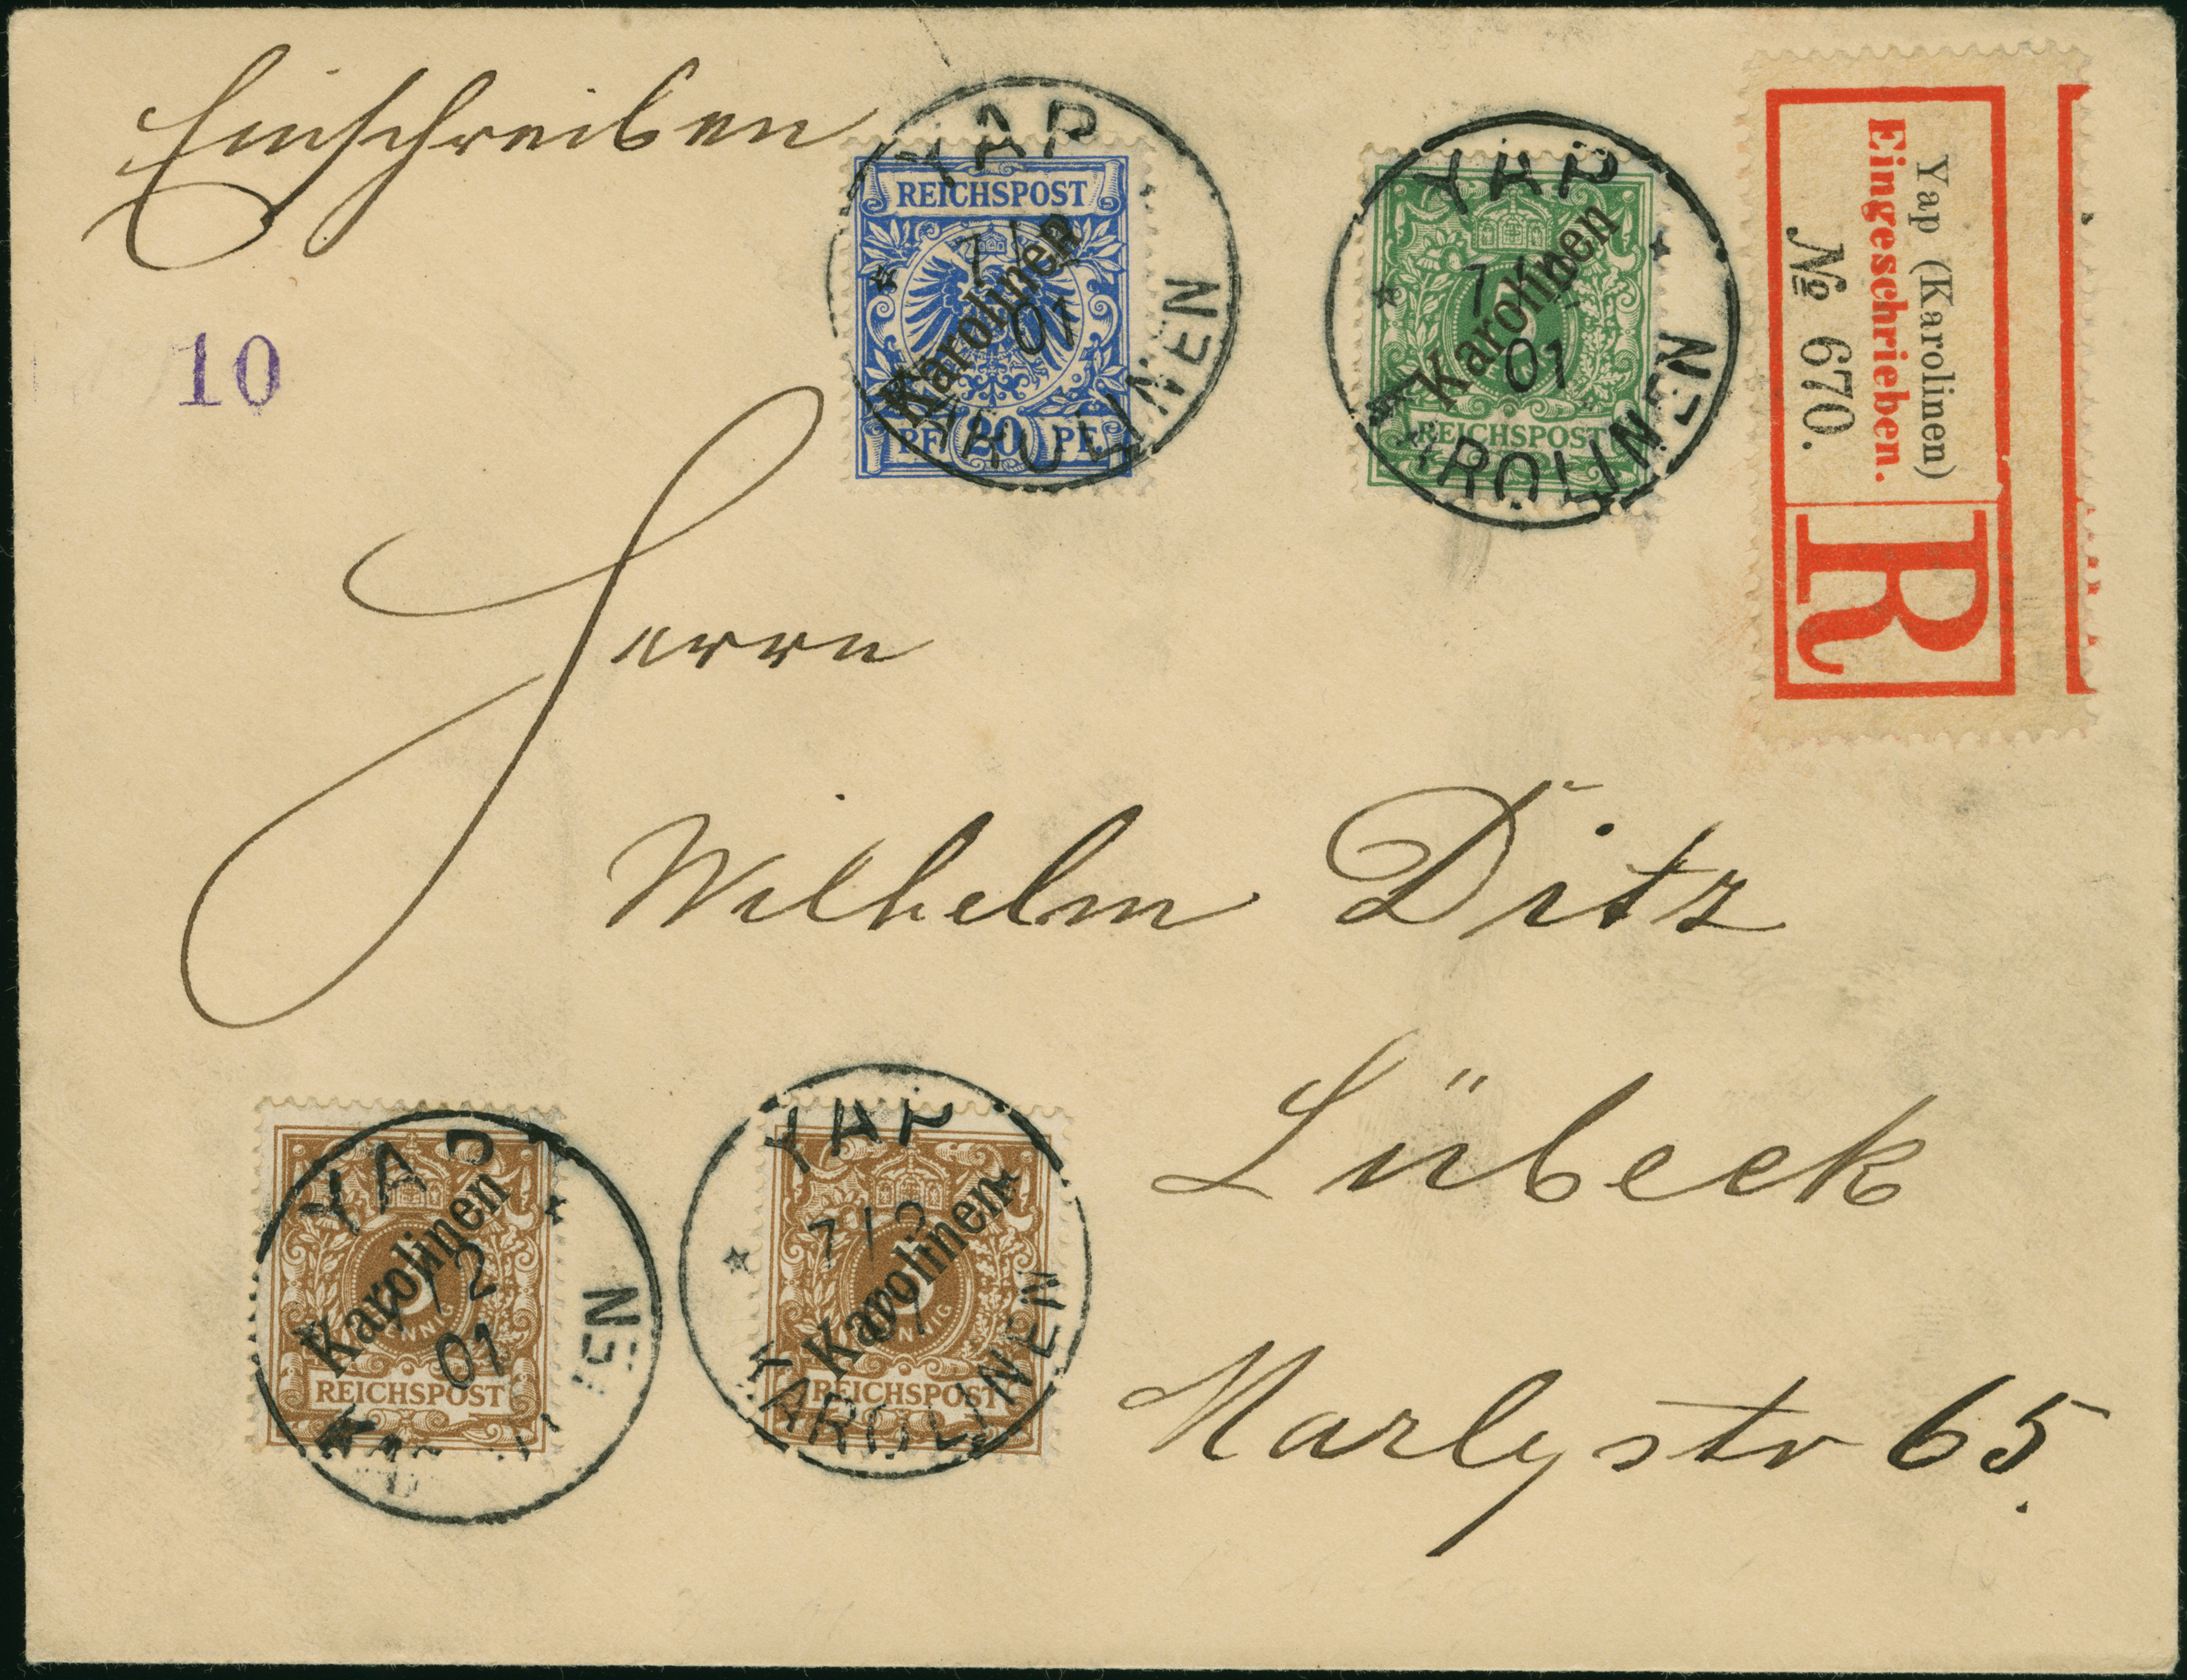 Einschreiben
10
YAP
7/2
01
KAROLINEN
REICHSPOST
Karolinen
PF 20 PF
YAP
7/2
01
KAROLINEN
5
Karolinen
REICHSPOST
Yap (Karolinen)
Eingeschrieben.
№ 670.
R
Herrn
Wilhelm Ditz
Lübeck
Marlystr 65.
YAP
7/2
01
Karolinen
3
PFENNIG
REICHSPOST
YAP
7/2
01
KAROLINEN
Karolinen
3
PFENNIG
REICHSPOST